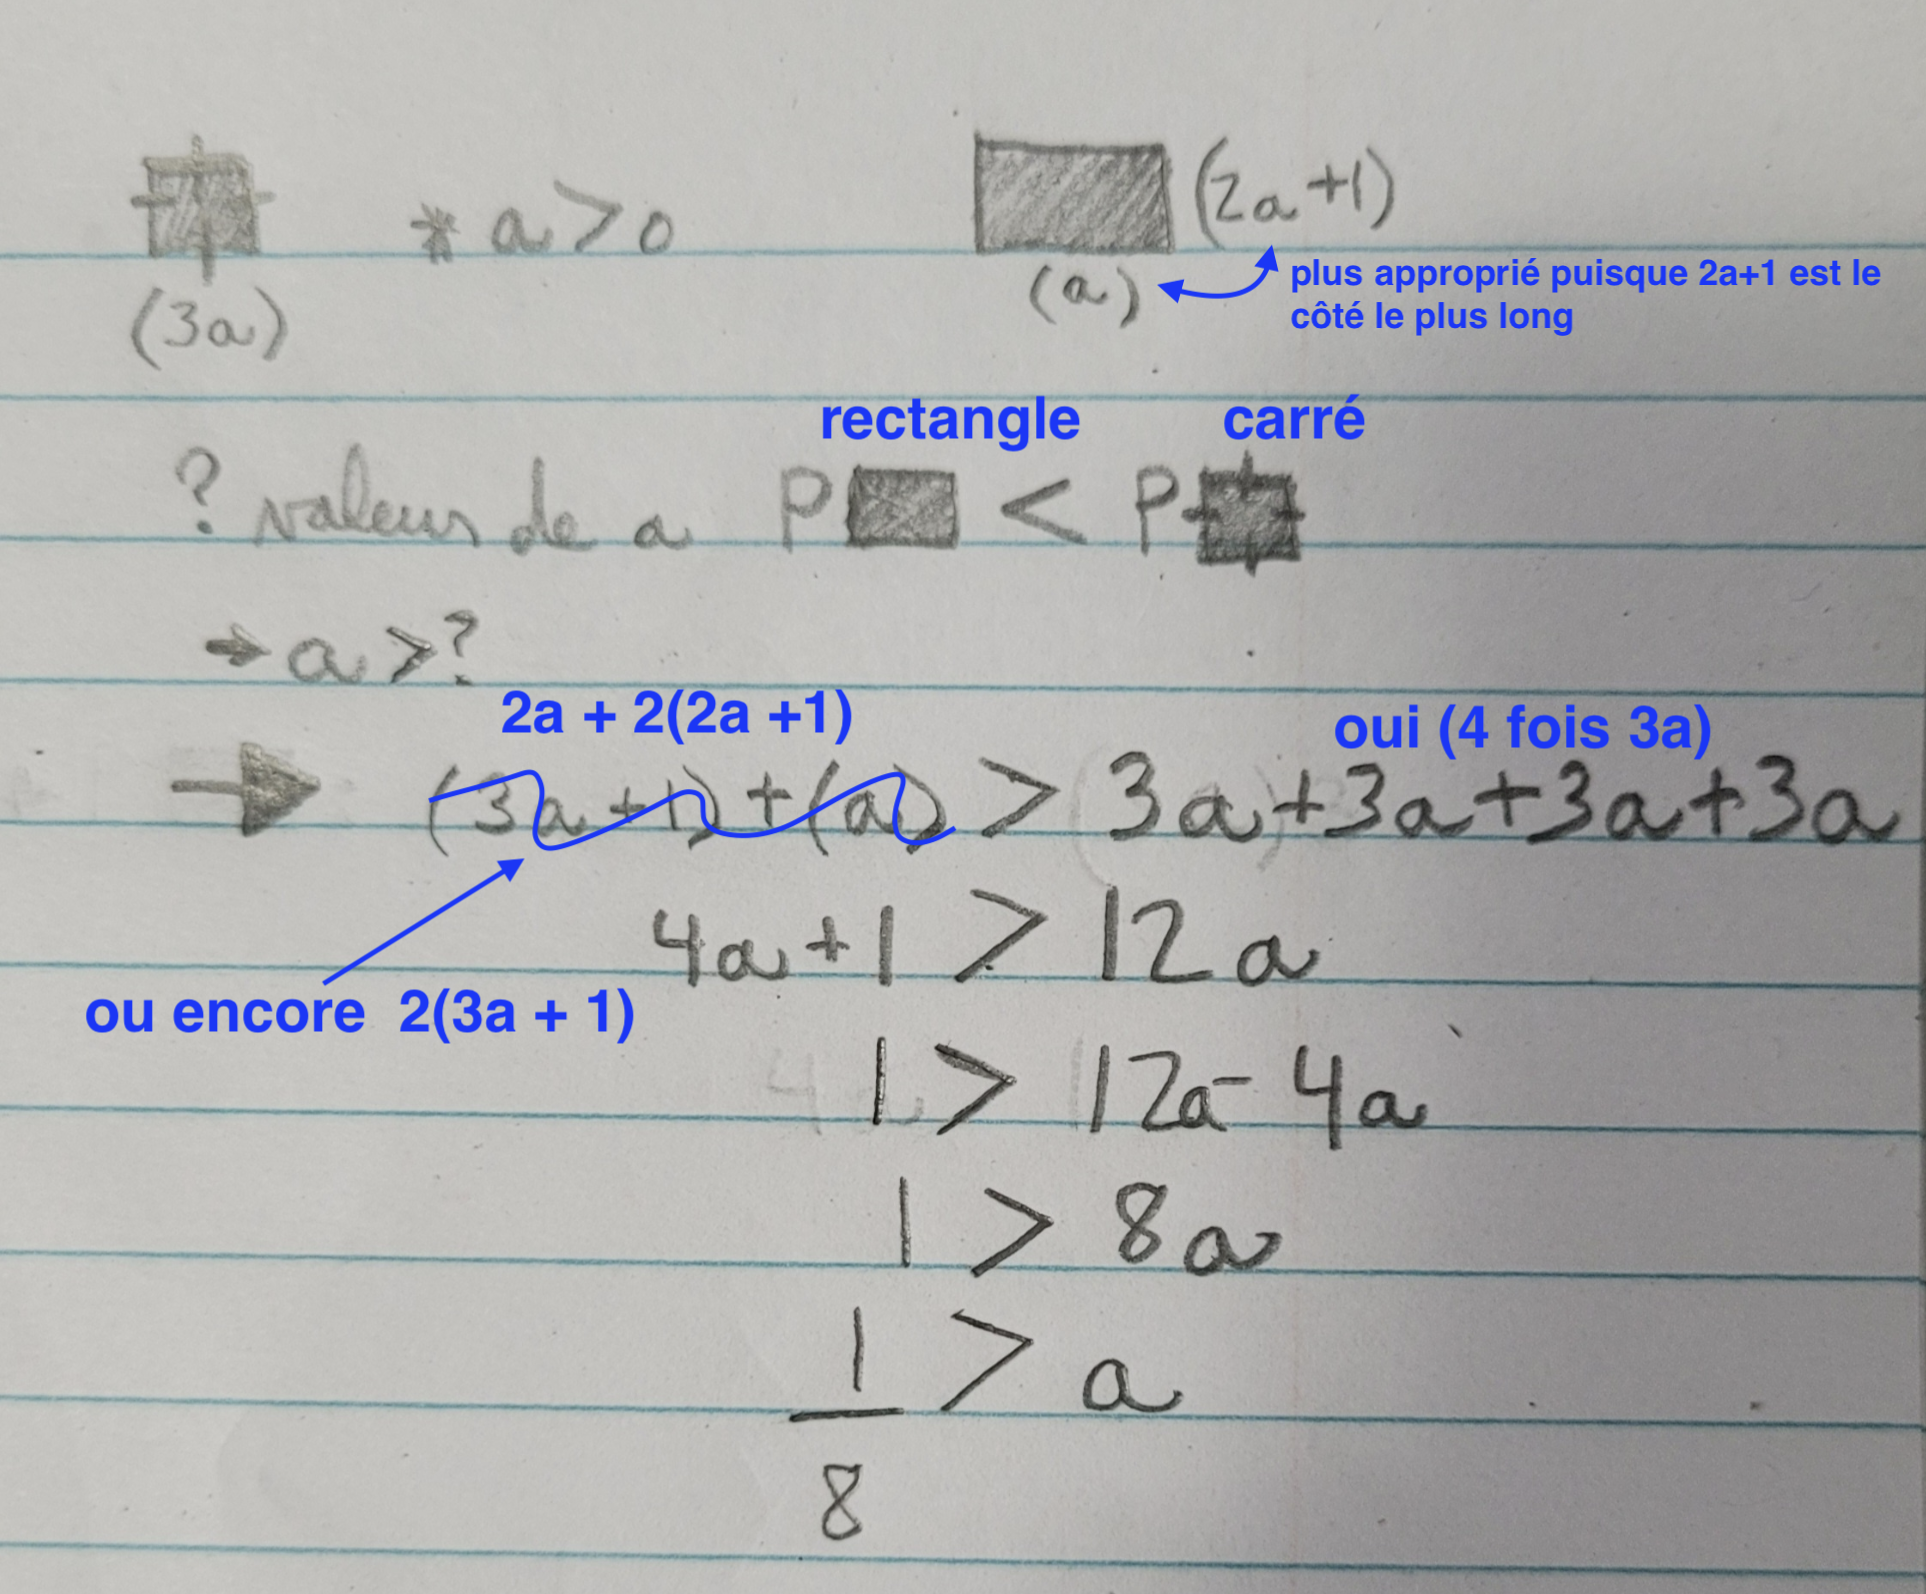 * a > 0
(2a +1)
(3a)
(a)
plus approprié puisque 2a+1 est le
côté le plus long
rectangle carré
? valeur de a P < P
→ a > ?
2a + 2(2a +1)
oui (4 fois 3a)
→ (3a +1) + (a) > 3a +3a +3a +3a
4a +1 > 12a
ou encore 2(3a + 1)
1 > 12a - 4a
1 > 8a
1/8 > a